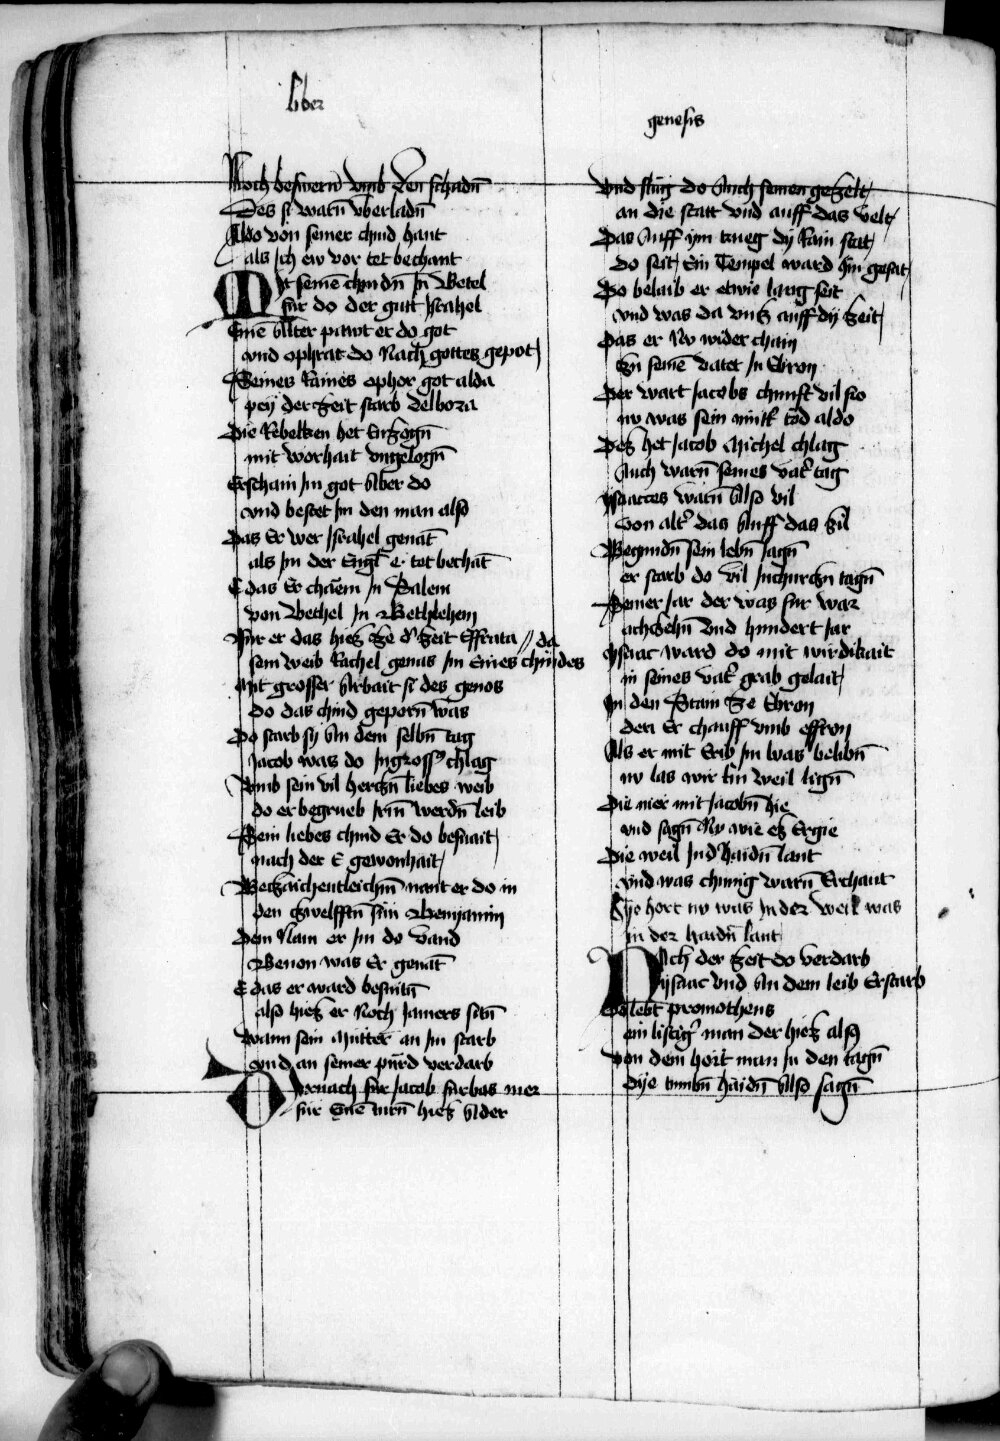 liber
genesis
Noch beswern vmb den schadn̄
Des si warn̄ vberladn̄
Aldo von seiner chind hant
als Ich ew vor tet bechant
Mit seinē chindn̄ In Betel
fur do der gutt Israhel
Einē Alter pawt er do got
vnd ophrat do Nach gottes gepot
Seines Raines ophor got alda
pey der zeit starb delbora
Die Rebekken het Erzogn̄
mit worhait vngelogn̄
Erschain Im got Aber do
vnd bestet Im den man also
Das Er wer Israhel genāt
als Im der Engl e tet bechāt
E das Er chāem In Salem
von Bethel In Bethlehem
Fur er das hiez ze d' zeit Effrata // da
sein weib Rachel genas Im Eines chindes
Mit grosser Arbait si des genos
do das chind geporn̄ was
Do starb sy An dem selbn̄ tag
Jacob was do In gross' chlag
Vmb sein vil herczn̄ liebes weib
do er begrueb Irn̄ werdn̄ leib
Sein liebes chind Er do besnait
nach der E gewonhait
Beczaichenleichn̄ nant er do in
den zwelfftn̄ sun Benyamin
Dem Nam er Im do vand
Benon was Er genāt
E das er ward besnitn̄
also hiez er Noch Jamers sitn̄
Wann sein Mutter an Im starb
vnd an seiner pu̅rd verdarb
Dornach fur Jacob furbas mer
fur Einē turn̄ hiez Ader
Vnd slug do Auch seinen gezelt
an die statt vnd auff das velt
Das Auff ym trueg dy Rain stat
do seit Ein Tempel ward hin gesat
Do belaib er etwie lang seit
vnd was da vncz auff dy zeit
Das er Nv wider chain
Zu seinē vater In Ebron
Der wart Jacobs chunft vil fro
nv was sein mut' tod aldo
Dez het Jacob Michel chlag
Auch warn̄ seines vat' tag
Ysaaces warn̄ Also vil
Von alt' das Auff das zil
Begundn̄ sein lebn̄ Jagn̄
er starb do vil In churczn tagn̄
Seiner Jar der was fur war
achczehn̄ vnd hundert Jar
Ysaac ward do mit wirdikait
in seines vat' grab gelait
In den Stain ze Ebron
den Er chauff vmb effron
Als er mit Erib Im was belibn̄
nv las wir ein weil lign̄
Die mer mit Jacobn̄ hie
vnd sagn̄ Nv wie ez Ergie
Die weil Ind' haidn̄ lant
vnd was chunig warn̄ Erchant
Hye hort nv was In der weil was
in der haidn̄ lant
Nach der zeit do verdarb
ysaac vnd An dem leib Erstarb
Do lebt promothens
ein listig' man der hiez alsȯ
Von dem hort man In den tagn̄
dye tumbn̄ haidn̄ Also sagn̄